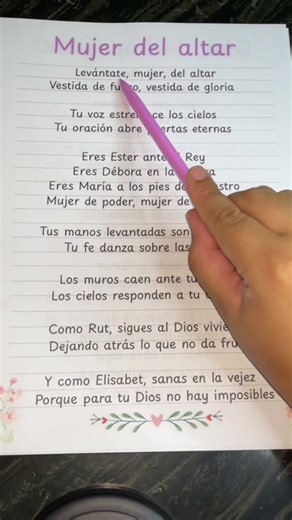 Mujer del altar
Levántate, mujer, del altar
Vestida de fuego, vestida de gloria
Tu voz estremece los cielos
Tu oración abre puertas eternas
Eres Ester ante el Rey
Eres Débora en la
Eres María a los pies del Maestro
Mujer de poder, mujer de
Tus manos levantadas son
Tu fe danza sobre las
Los muros caen ante tu
Los cielos responden a tu
Como Rut, sigues al Dios
Dejando atrás lo que no da
Y como Elisabet, sanas en la vejez
Porque para tu Dios no hay imposibles